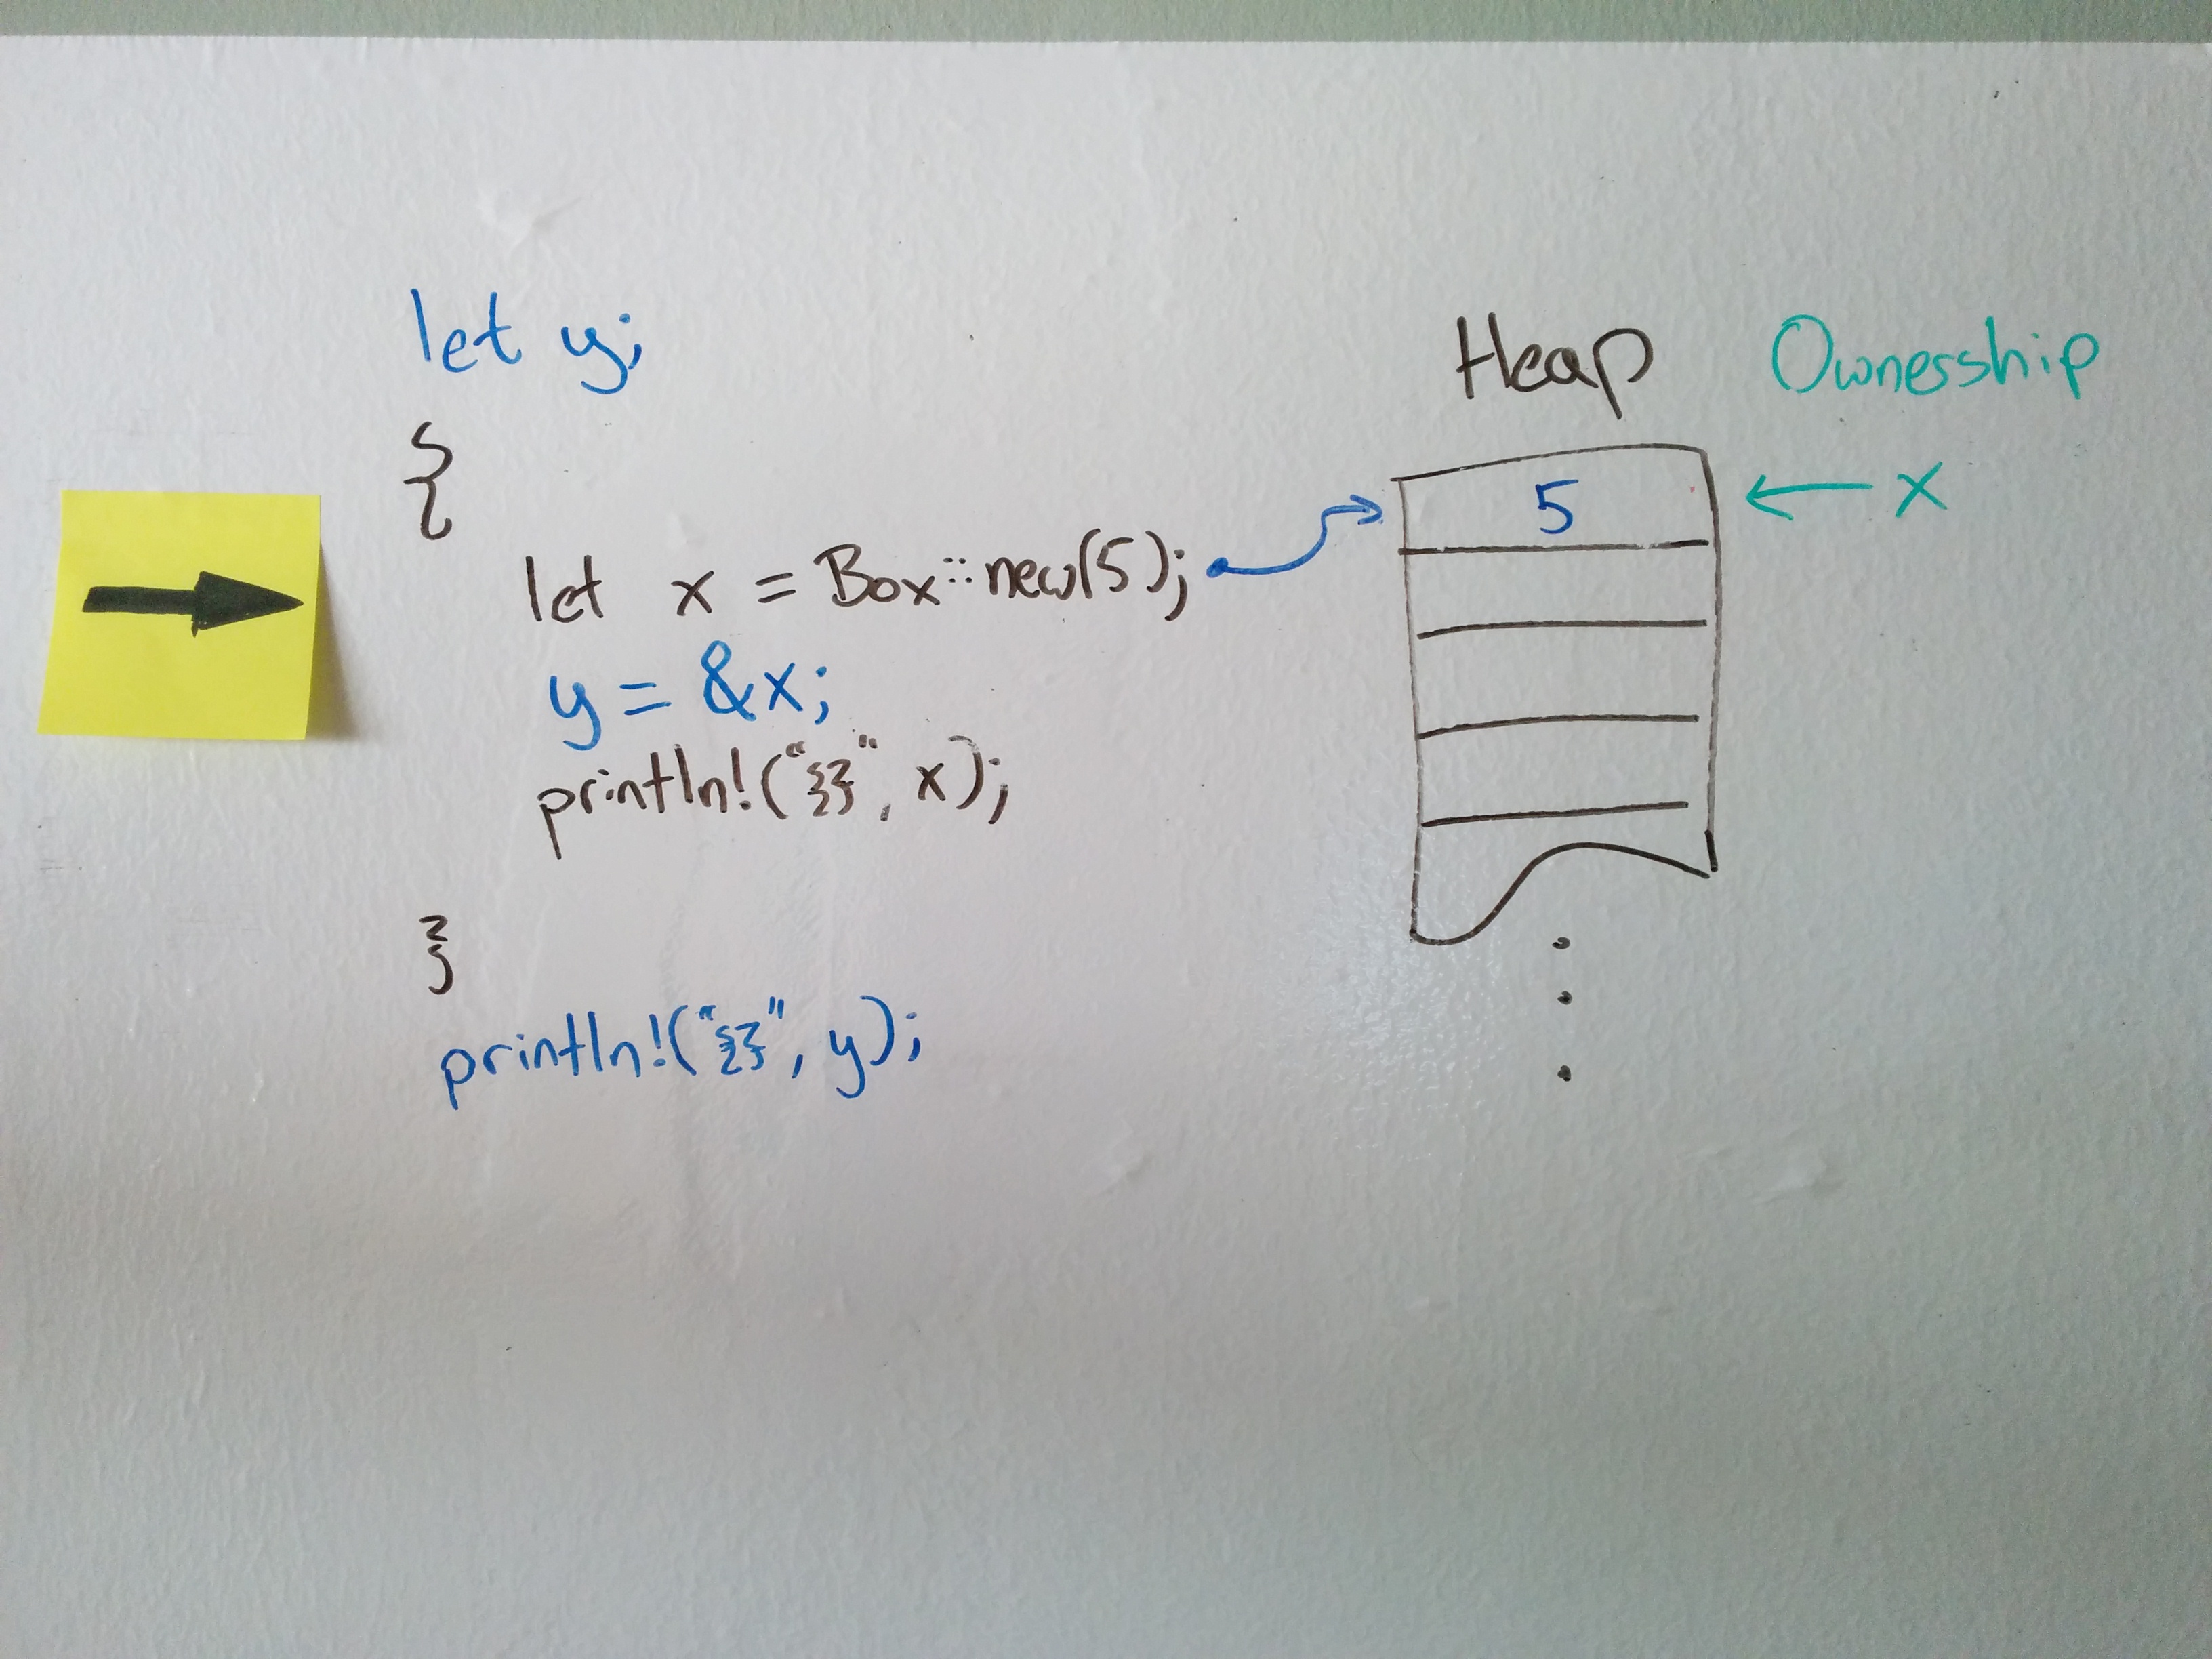 let y;
{
let x = Box::new(5);
y = &x;
println!("{}", x);
}
println!("{}", y);
Heap
5
Ownership
x